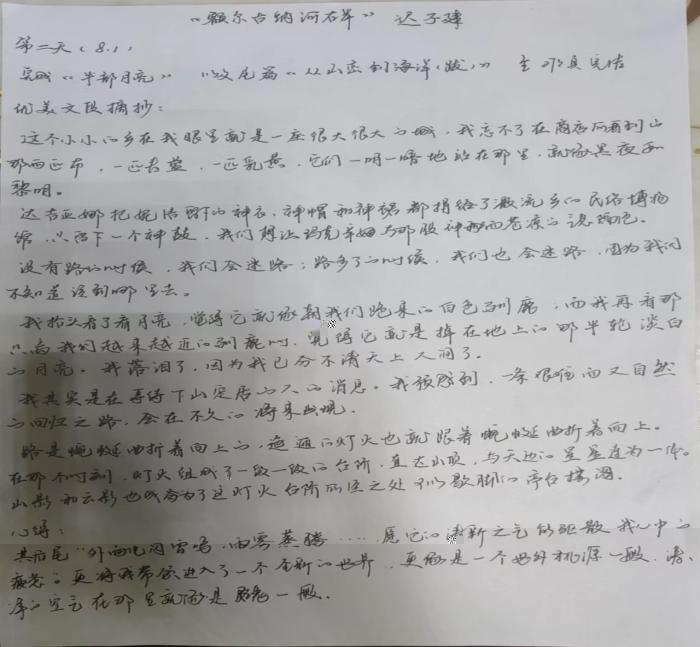 “额尔古纳河右岸” 迟子建
第二天（8.1）
完成《半部月亮》以及尾篇《从山峦到海洋（跋）》 至 此真完结
优美文段摘抄：
这个小小的乡在我眼里就是一座很大很大的城，我忘不了在商店所看到的
那两匹布，一匹青蓝，一匹乳黄，它们一明一暗地站在那里，就像黑夜和
黎明。
达吉亚娜把妮浩留下的神衣、神帽和神裙都捐给了激流乡的民俗博物
馆，只留下一个神鼓。我们想让玛克辛姆与那股神秘而苍凉的
没有路的时候，我们会迷路；路多了的时候，我们也会迷路，因为我们
不知道该到哪里去。
我抬头看了看月亮，觉得它就像朝我们跑来的白色驯鹿，而我再看那
只离我们越来越近的驯鹿时，觉得它就是掉在地上的那半轮淡白
的月亮。我落泪了，因为我已分不清天上人间了。
我其实是在等待下山定居的人的消息。我预感到，一条艰难而又自然
的回归之路，会在不久的将来出现。
路是蜿蜒曲折着向上的，道道的灯火也就跟着蜿蜒曲折着向上。
在那个时刻，灯火组成了一级一级的台阶，直达山顶，与天边的星星连为一体。
山影和云影也成为了这灯火台阶所经之处可以歇脚的亭台楼阁。
心得：
其后尾“外面电闪雷鸣，雨雾蒸腾……愿它的清新之气能驱散我心中的
疲惫。更将我带领进入了一个全新的世界，更像是一个世外桃源一般，清、
净的空气在那里就像是 一般。